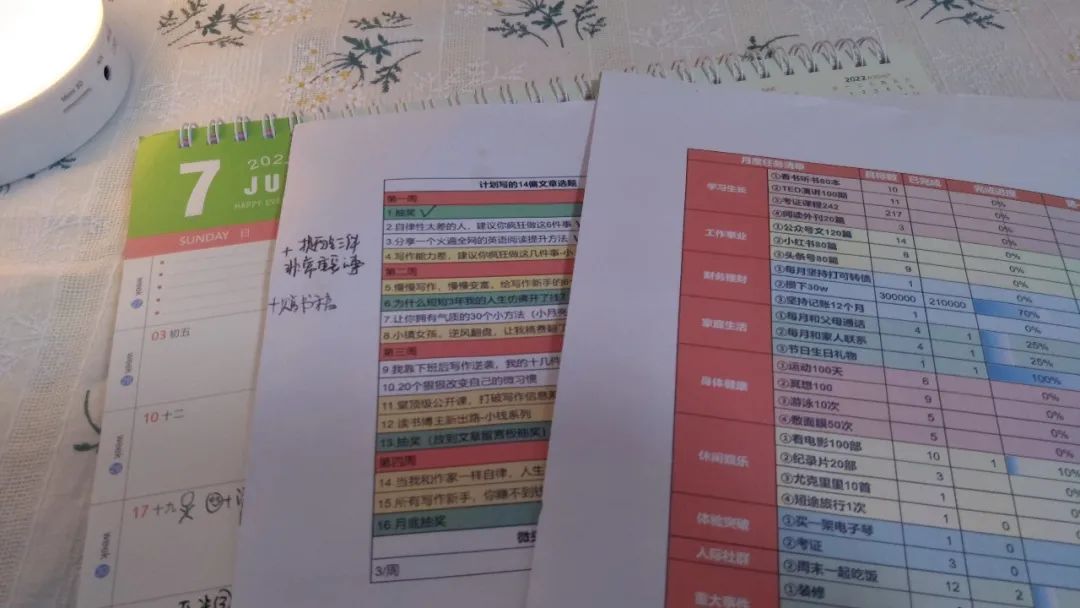 7
JU
SUNDAY 日
03 初五
10 十二
17 十九
计划写的14篇文章选题
第一周
1.抽奖
2.自律性太差的人，建议你疯狂做这6件事
3.分享一个火遍全网的英语阅读提升方法
4.写作能力差，建议你疯狂做这几件事-小
第二周
5.慢慢写作，慢慢变富，给写作新手的6
6.为什么短短3年我的人生仿佛开了挂？
7.让你拥有气质的30个小方法（小月亮
8.小镇女孩，逆风翻盘，让我稿费翻了
第三周
9 我靠下班后写作逆袭，我的十几件
10.20个狠狠改变自己的微习惯
11 堂顶级公开课，打破写作信息差
12 读书博主新出路-小钱系列
13.抽奖（放到文章留言板抽奖）
第四周
14 当我和作家一样自律，人生
15 所有写作新手，你赚不到钱
16 月底抽奖
3/周
2022
月度任务清单 目标数 已完成 完成进度
学习生长 ①看书听书80本 10 0%
②TED演讲100期 11 0%
③考证课程242 217 0%
④阅读外刊20篇 3 0%
工作事业 ①公众号文120篇 14 0%
②小红书80篇 8 0%
③头条号80篇 9 0%
财务理财 ①每月坚持打可转债 1 0%
②攒下30w 300000 210000 70%
③坚持记账12个月 1 0%
家庭生活 ①每月和父母通话 4 1 25%
②每月和家人联系 4 1 25%
③节日生日礼物 1 1 100%
身体健康 ①运动100天 6 0%
②冥想100 9 0%
③游泳10次 5 0%
④敷面膜50次 5 0%
休闲娱乐 ①看电影100部 10 1 10%
②纪录片20部 3 0%
③尤克里里10首 1 0%
④短途旅行1次 1 0
体验突破 ①买一架电子琴 1 0
②考证 3 0
人际社群 ②周末一起吃饭 12 2
重大事件 ①装修